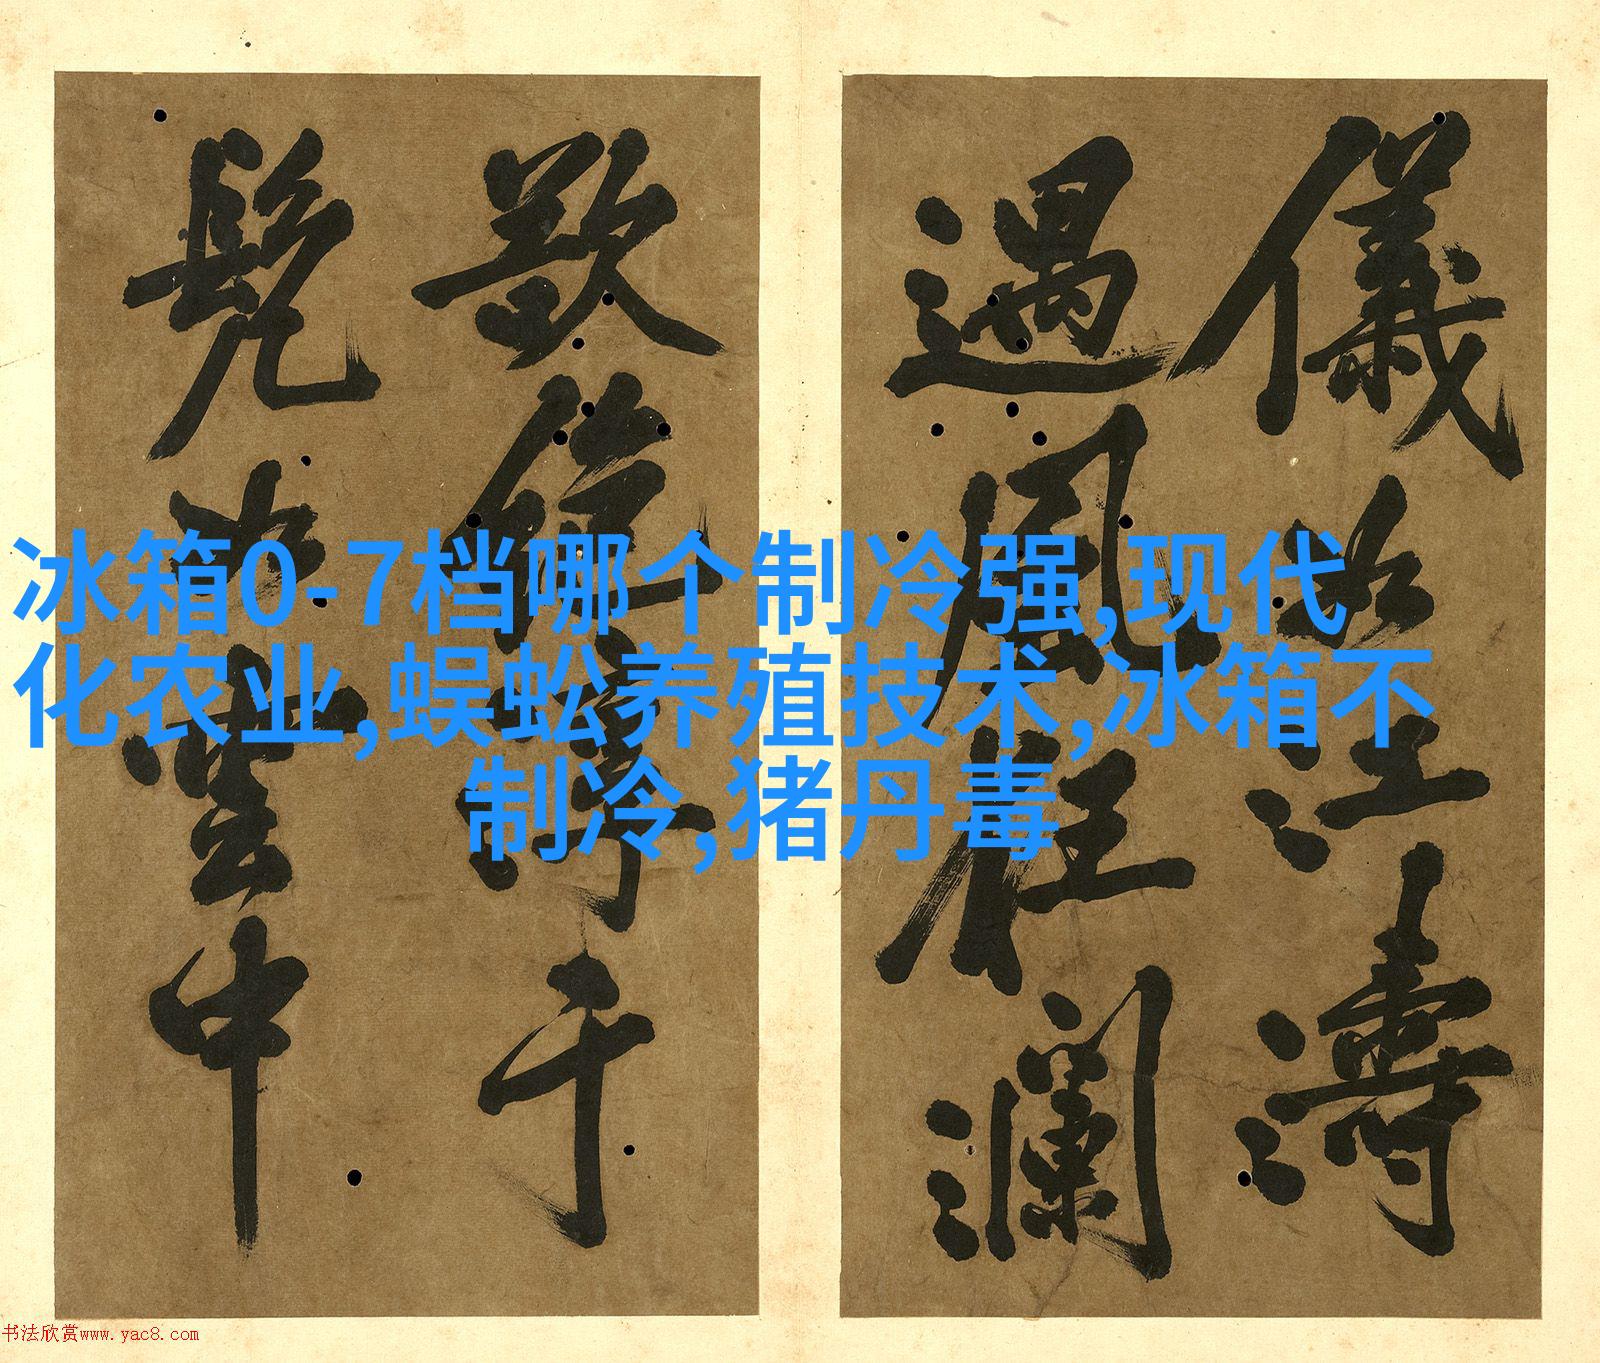 冰箱0-7档哪个制冷强,现代
化农业,蜈蚣养殖技术,冰箱不
制冷,猪丹毒
儀江濤
遇風狂瀾
于
雲中
书法欣赏www.yac8.com